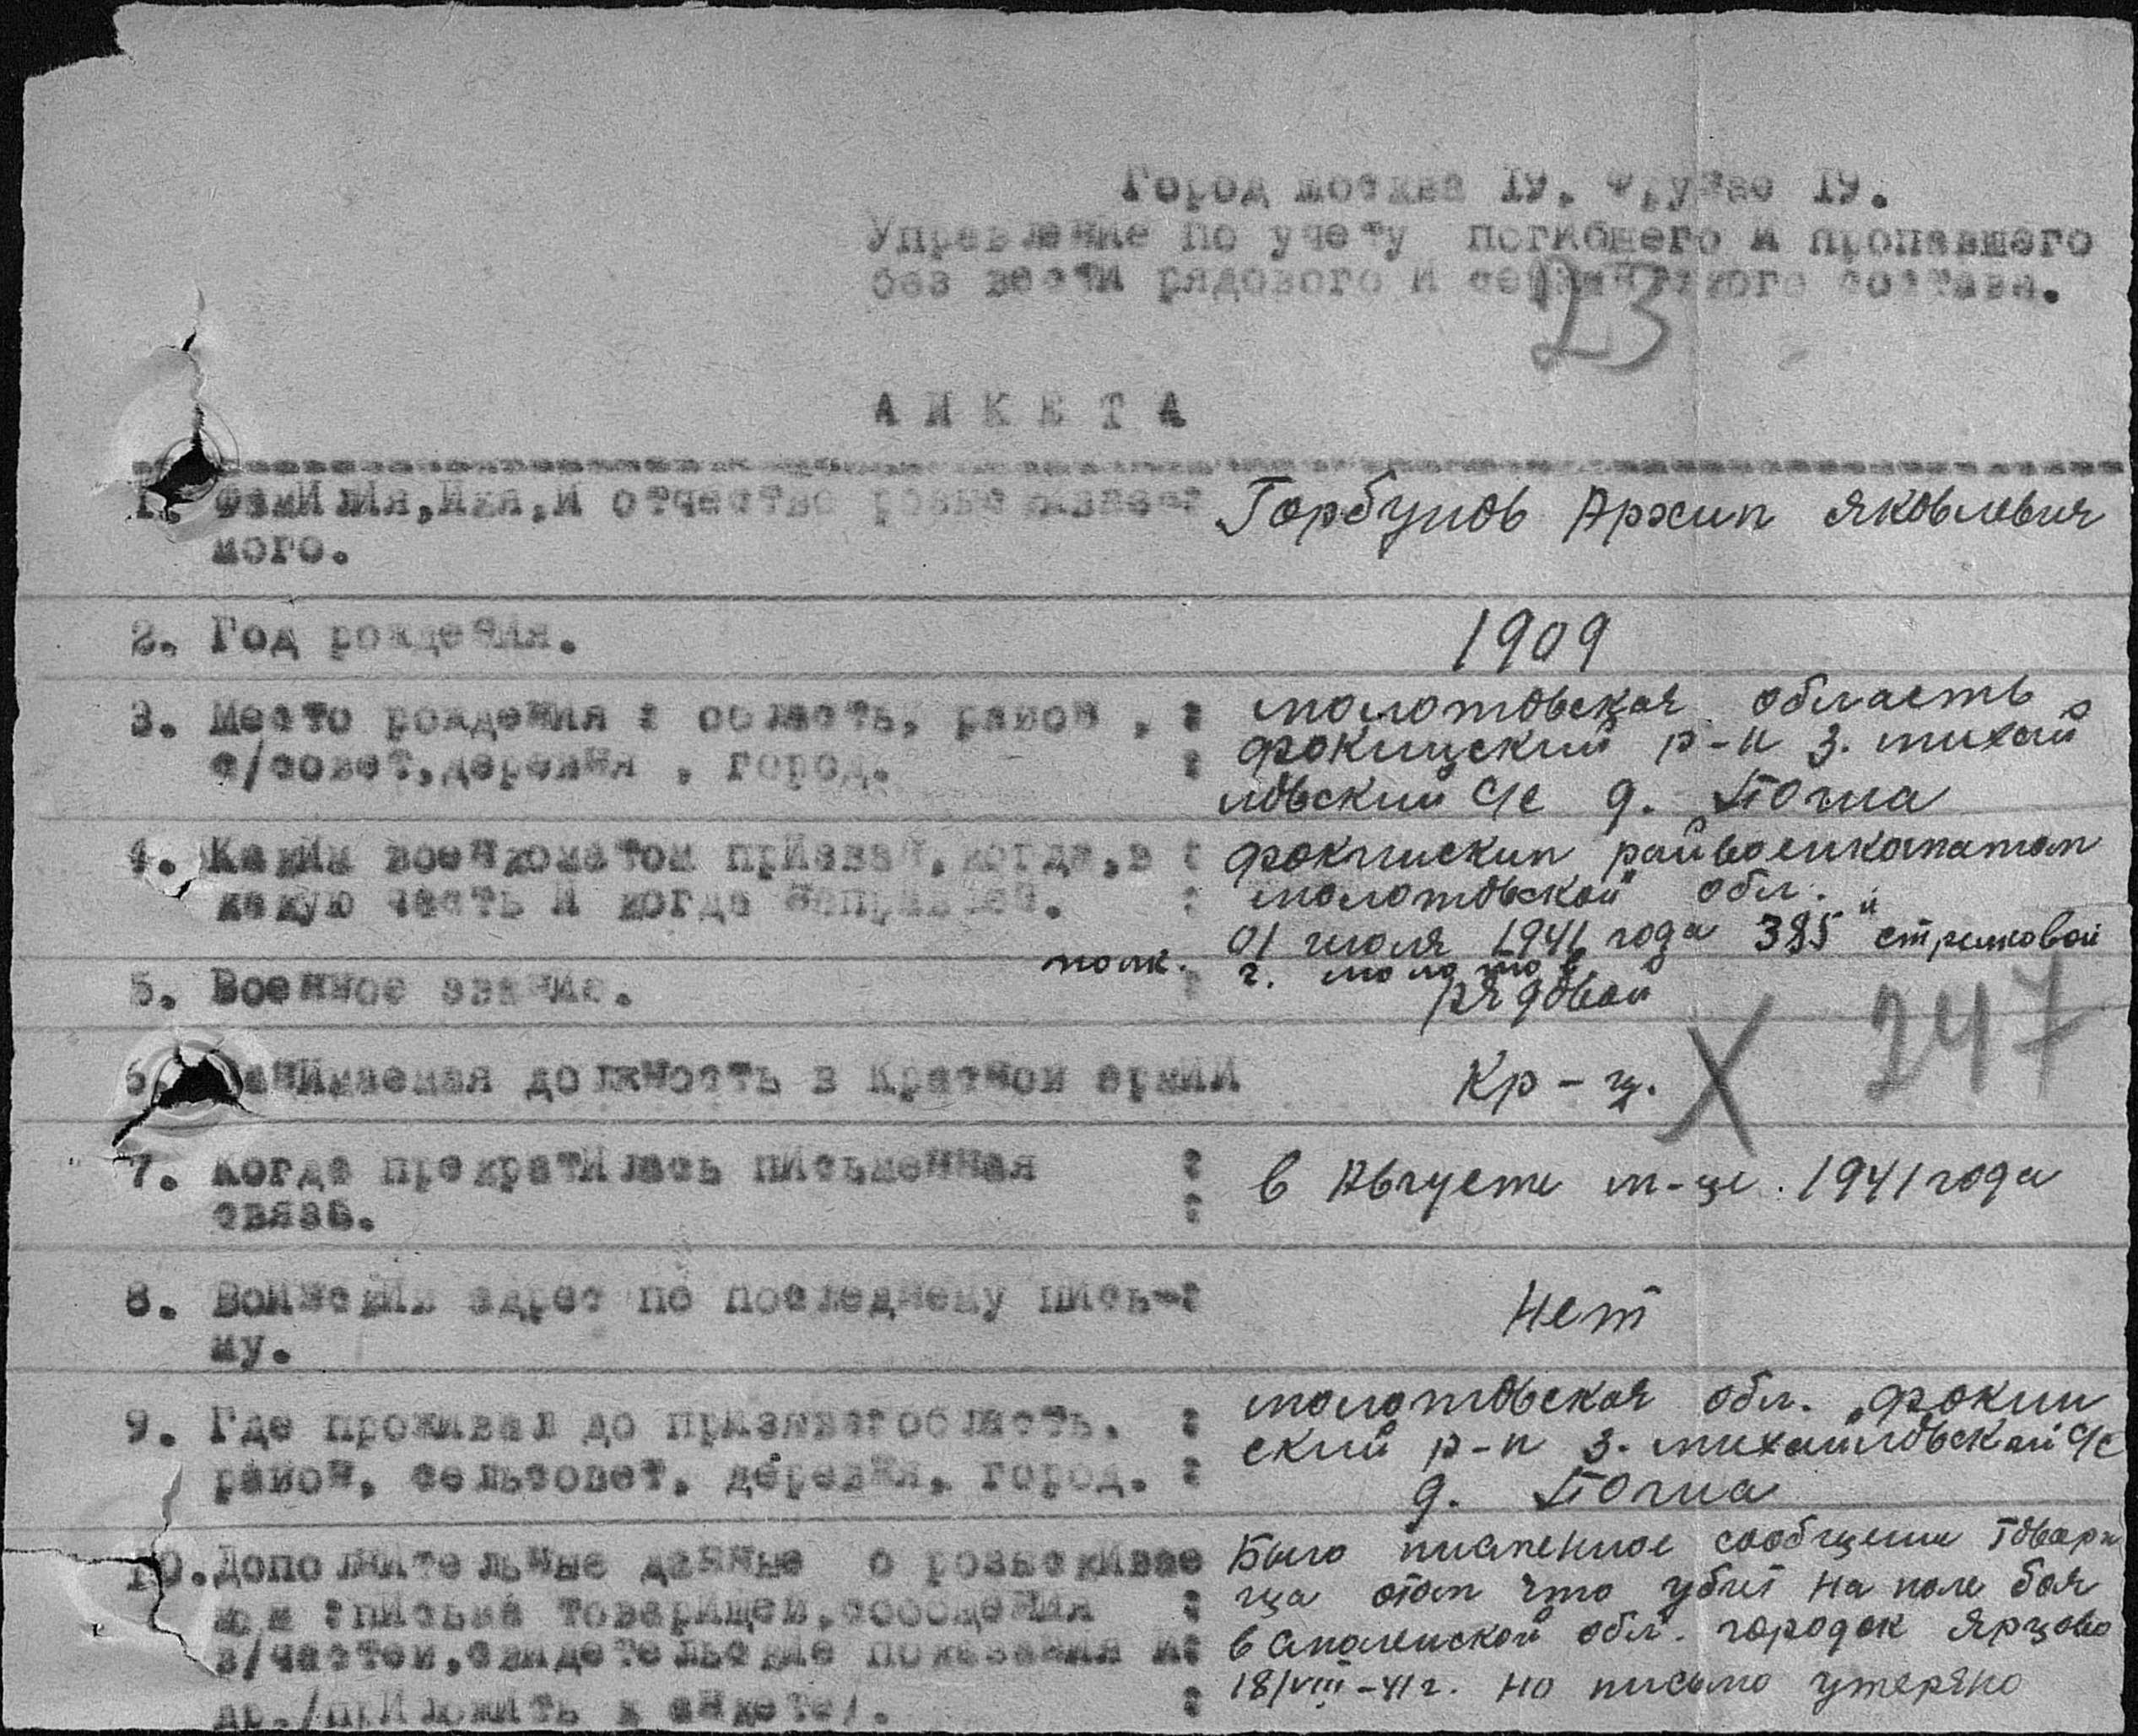 Город москва 19. Фрунзе 19.
Управление по учету погибшего и пропавшего
без вести рядового и сержантского состава.
23
АНКЕТА
1. Фамилия, имя, и отчество розыскивае-: Горбунов Архип Яковлевич
мого.
2. Год рождения. 1909
3. Место рождения : область, район , : молотовская область
с/совет, деревня , город. : фокинский р-н з. михай
ловский с/с д.
4. Каким военкоматом призван, когда, в : фокински райвоенкоматом
какую часть и когда направлен. : молотовской обл.
01 июля 1941 года 385 й стрелковой
полк. г. молотов
5. Военное звание. : рядовой
6. Занимаемая должность в Красной армии Кр-ц. X 247
7. Когда прекратилась письменная : в Августе м-це. 1941 года
связь. :
8. Воинский адрес по последнему пись-: Нет
му.
9. Где проживал до призыва: область. : молотовская обл. фокин
район, сельсовет, деревня, город. : ский р-н з. михайловский с/с
д.
10. Дополнительные данные о розыскивае Было писменное сообщение товари
мом :письма товарищей, сообщения : ща отом что убит на поле боя
в/частей, свидетельские показания и: в смоленской обл. городок Ярцово
др./приложить к анкете/. : 18/VIII-41 г. но письмо утеряно